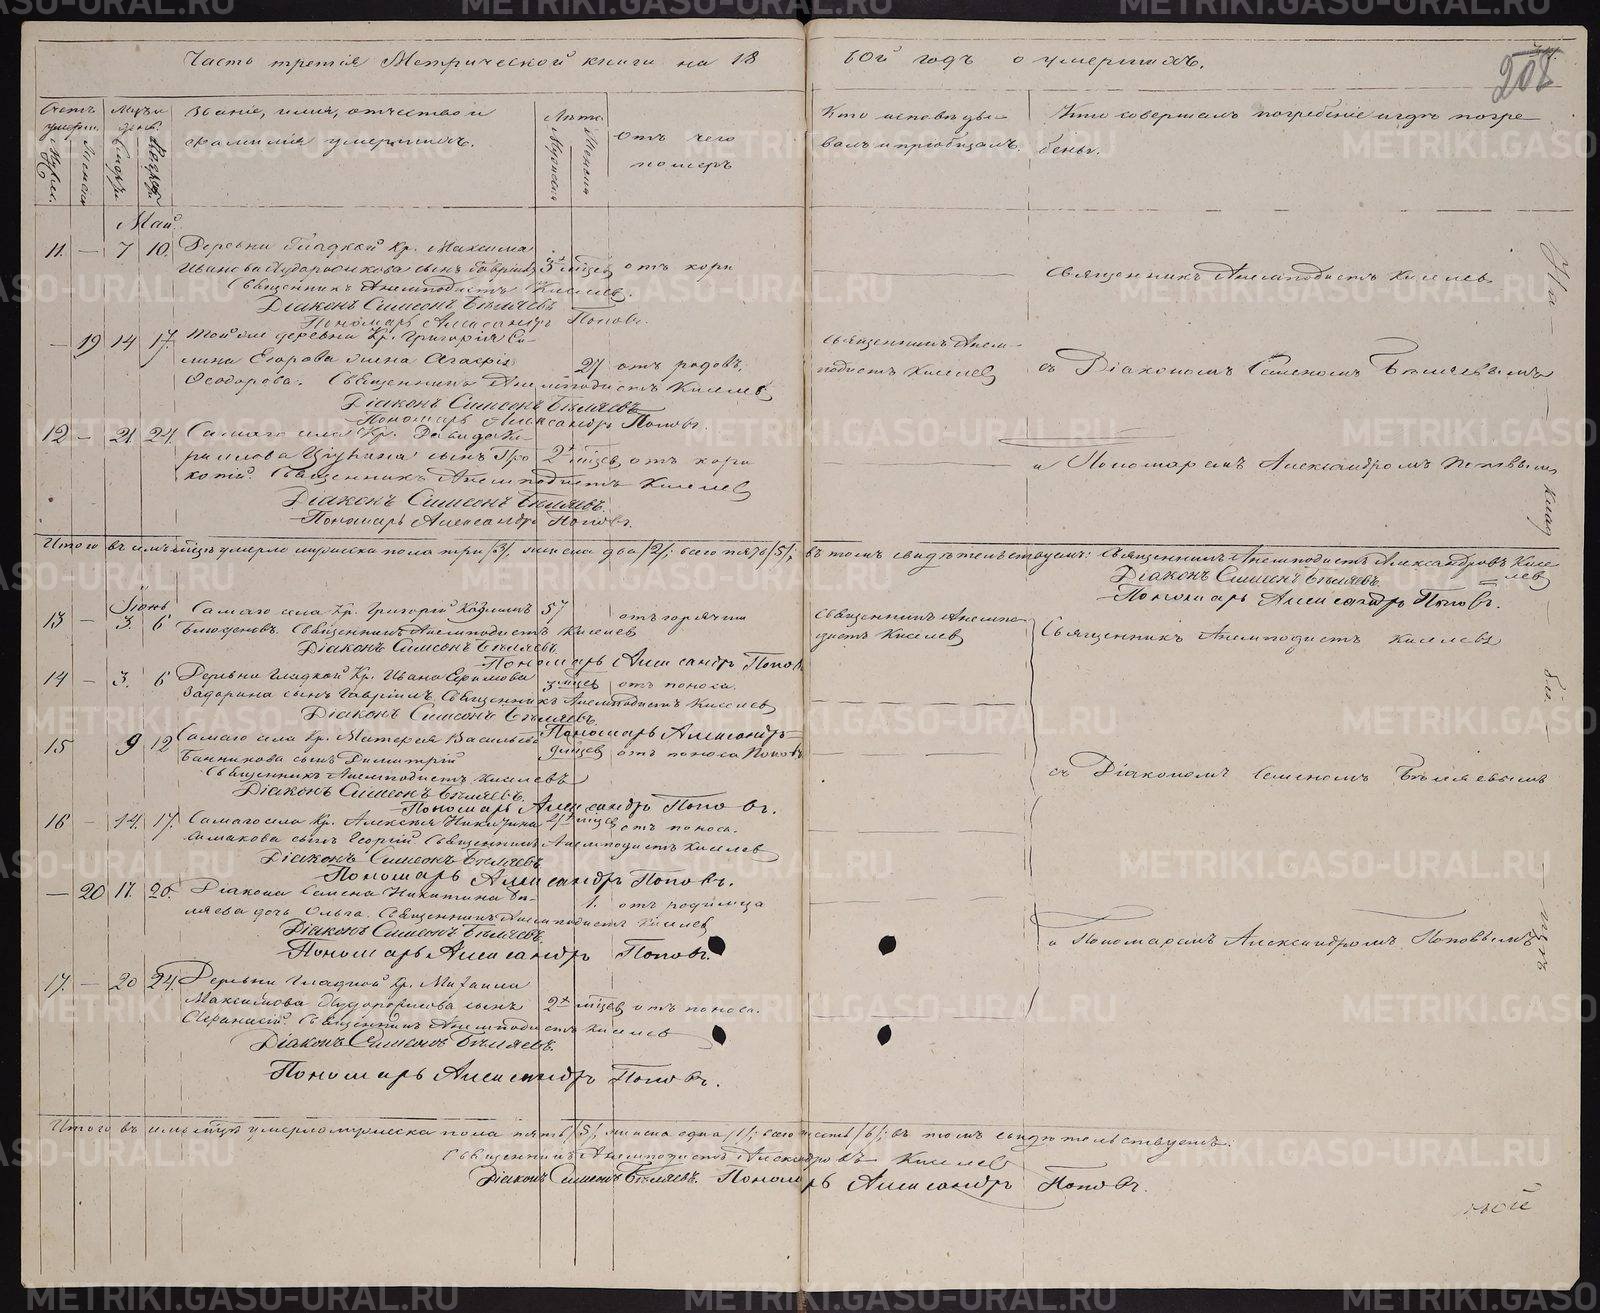 Часть третія Метрической книги на 18 60й годъ о умершихъ.
208
Счетъ умерш.
Мужес.
Женска
Мѣс. и день.
Смерт.
Погреб.
Званіе, имя, отчество и
фамилія умершихъ.
Лѣта
Мужеска
Женска
Отъ чего
померъ
Кто исповѣды-
валъ и пріобщалъ.
Кто совершалъ погребеніе и гдѣ погре-
бены.
Май
11. — 7 10. Деревни Гладкой Кр. Максима
Иванова сынъ Гавріилъ 3 мѣсец отъ кори
Священникъ Анемподистъ Киселевъ.
Діаконъ Симеонъ Бѣляевъ
Пономарь Александръ Поповъ.
Священникъ Анемподистъ Киселевъ
— 19 14 17. Той же деревни Кр. Григорія Со-
мина Егорова жена Агафія 27 отъ родовъ.
Ѳеодорова. Священникъ Анемподистъ Киселевъ
Діаконъ Симеонъ Бѣляевъ
Пономарь Александръ Поповъ.
Священникъ Анем-
подистъ Киселевъ
съ Діакономъ Семеномъ Бѣляевымъ
12 — 21 24. Самаго села Кр. Давида Ки-
риллова сынъ Про 2 мѣсец отъ кори
копій. Священникъ Анемподистъ Киселевъ
Діаконъ Симеонъ Бѣляевъ.
Пономарь Александръ Поповъ.
и Пономаремъ Александромъ Поповымъ
Итого въ маѣ мѣсяцѣ умерло мужеска пола три /3/, женска два /2/; всего пять /5/; въ томъ свидѣтельствуемъ: Священникъ Анемподистъ Александровъ Кисе
левъ
Діаконъ Симеонъ Бѣляевъ
Пономарь Александръ Поповъ.
Іюнь
13 — 3. 6 Самаго села Кр. Григорій 57 отъ горячки
Священникъ Анемподистъ Киселевъ
Діаконъ Симеонъ Бѣляевъ.
Пономарь Александръ Поповъ
Священникъ Анемпо
дистъ Киселевъ
Священникъ Анемподистъ Киселевъ
14 — 3. 6 Деревни Гладкой Кр. Ивана Ефимова 3 мѣсец отъ поноса.
Задорина сынъ Гавріилъ. Священникъ Анемподистъ Киселевъ
Діаконъ Симеонъ Бѣляевъ.
Пономарь Александръ
Поповъ
15 9 12 Самаго села Кр. Матфея Васильева мѣсец отъ поноса
Банникова сынъ Димитрій
Священникъ Анемподистъ Киселевъ
Діаконъ Симеонъ Бѣляевъ.
Пономарь Александръ Поповъ.
съ Діакономъ Семеномъ Бѣляевымъ
16 — 14. 17. Самаго села Кр. Алексѣя Никитина 2 мѣсец отъ поноса.
сынъ Георгій. Священникъ Анемподистъ Киселевъ
Діаконъ Симеонъ Бѣляевъ
Пономарь Александръ Поповъ.
— 20 17. 20. Діакона Семена Никитина Бѣ-
ляева дочь Ольга. 1. отъ родимца
Священникъ Анемподистъ Киселевъ
Діаконъ Симеонъ Бѣляевъ
Пономарь Александръ Поповъ.
и Пономаремъ Александромъ Поповымъ
17. — 20 24. Деревни Гладкой Кр. Михаила
Максимова сынъ 2 мѣсец отъ поноса.
Аѳанасій. Священникъ Анемподистъ Киселевъ
Діаконъ Симеонъ Бѣляевъ.
Пономарь Александръ Поповъ.
Итого въ семъ мѣсяцѣ умерло мужеска пола пять /5/, женска одна /1/; всего шесть /6/; въ томъ свидѣтельствуемъ:
Священникъ Анемподистъ Александровъ Киселевъ
Діаконъ Симеонъ Бѣляевъ. Пономарь Александръ Поповъ.
На —
— клад
би —
— щѣ
METRIKI.GASO-URAL.RU